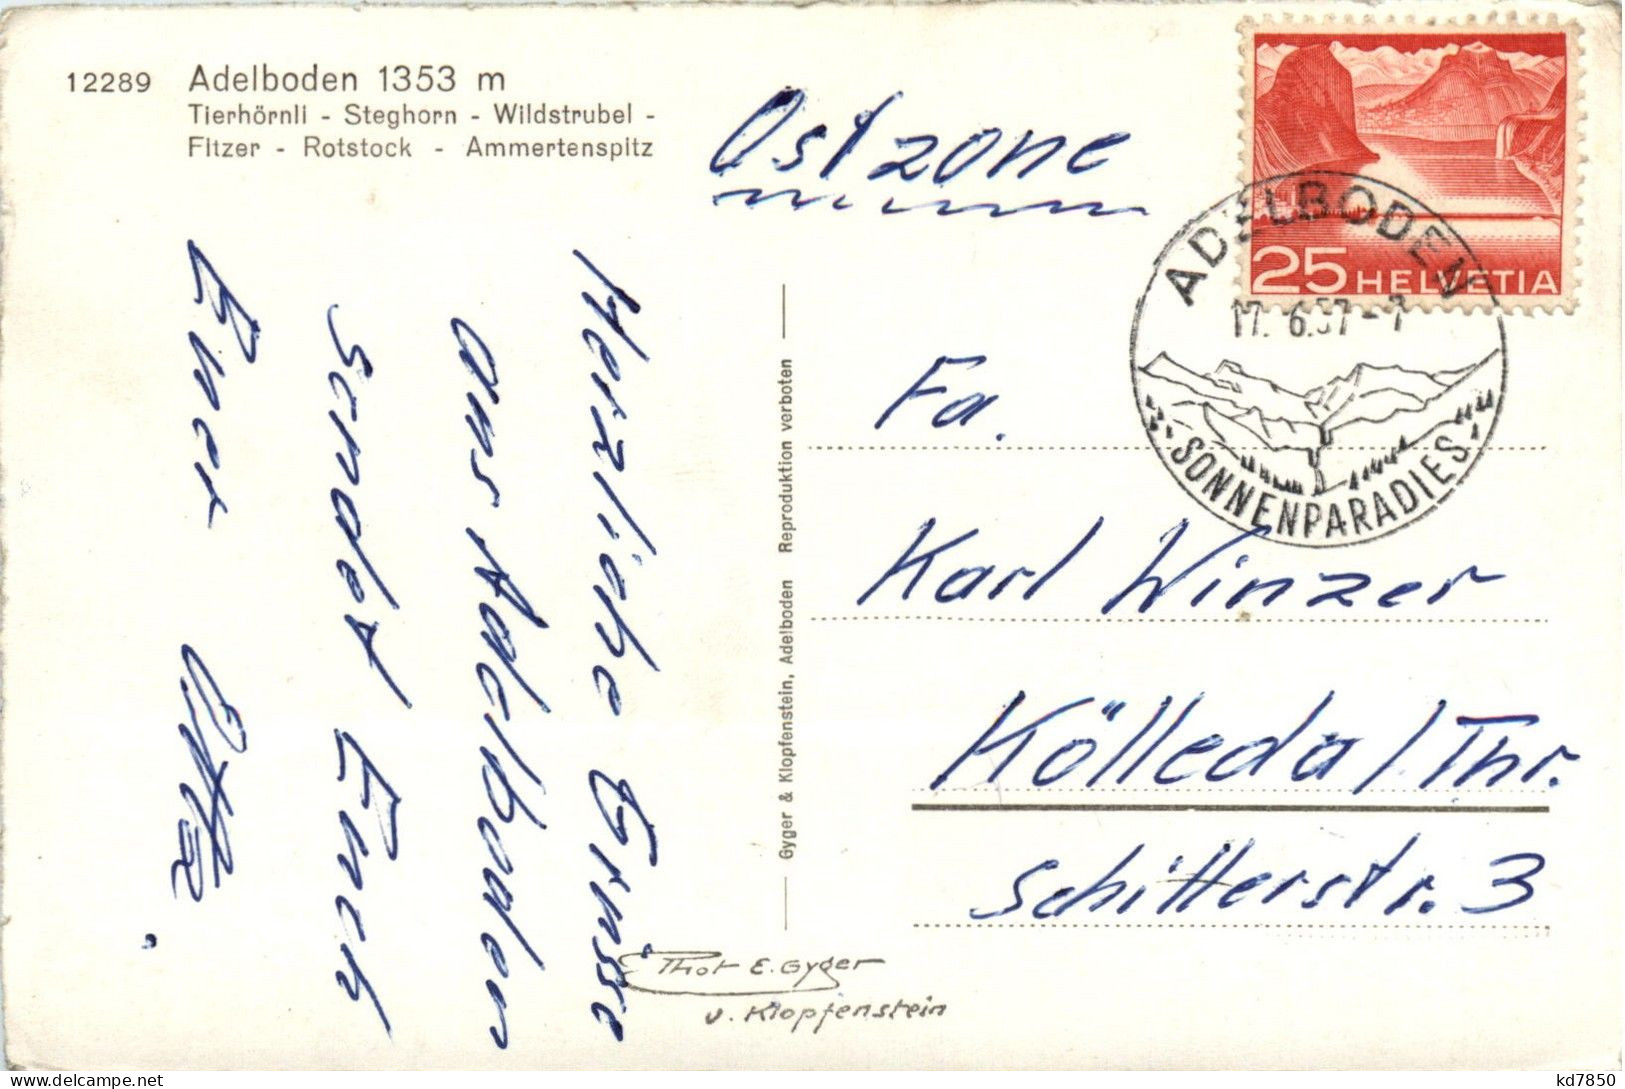 12289 Adelboden 1353 m
Tierhörnli - Steghorn - Wildstrubel -
Fitzer - Rotstock - Ammertenspitz
Ostzone
25 HELVETIA
ADELBODEN
17. 6.57-7
SONNENPARADIES
Herzliche Grüsse
aus Adelboden
sendet Euch
Euer
Gyger & Klopfenstein, Adelboden Reproduktion verboten
Fa.
Karl Winzer
Kölleda/Thr.
Schillerstr. 3
Phot E. Gyger
u. Klopfenstein
kd7850